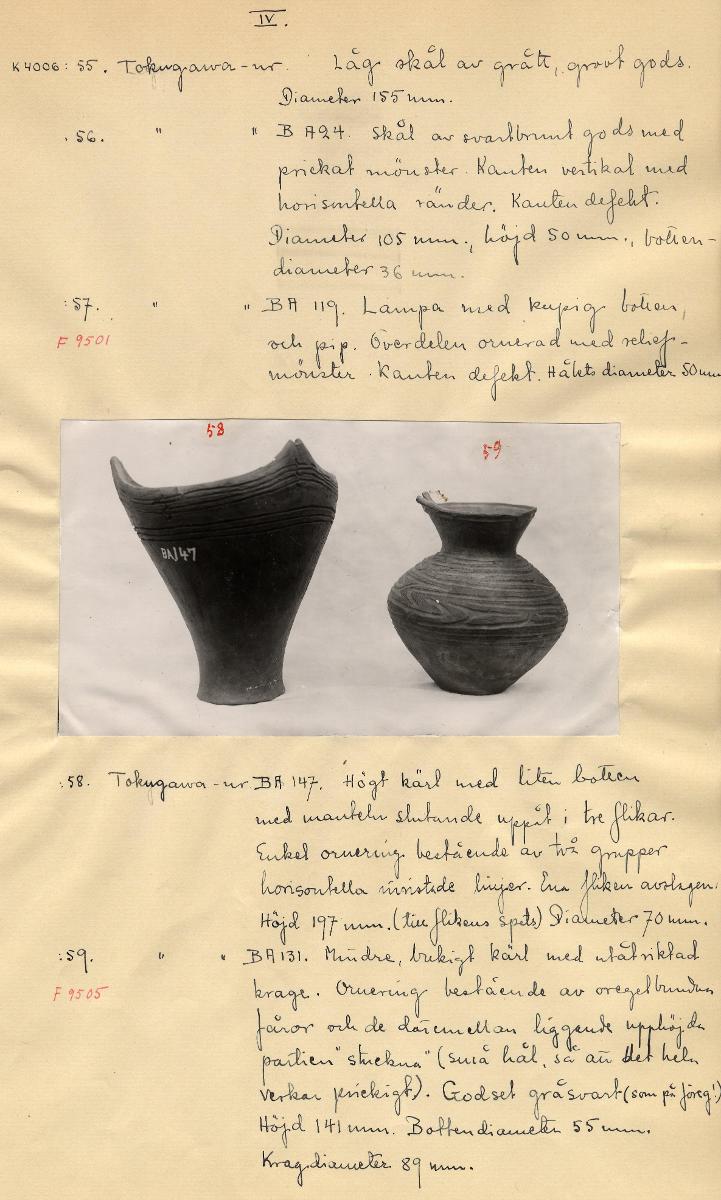 IV.
K4006:55. Tokugawa-nr. Låg skål av grått, grovt gods.
Diameter 155 mm.
:56. " " BA24. Skål av svartbrunt gods med
prickat mönster. Kanten vertikal med
horisontella ränder. Kanten defekt.
Diameter 105 mm., höjd 50 mm., botten-
diameter 36 mm.
:57. " " BA 119. Lampa med kupig botten,
F 9501
och pip. Överdelen ornerad med relief-
mönster. Kanten defekt. Hålets diameter 50 mm
58
59
BA147
:58. Tokugawa-nr BA 147. Högt kärl med liten botten
med manteln slutande uppåt i tre flikar.
Enkel ornering bestående av två grupper
horisontella inristade linjer. Ena fliken avslagen.
Höjd 197 mm. (till flikens spets) Diameter 70 mm.
:59. " " BA131. Mindre, bukigt kärl med utåtriktad
F 9505
krage. Ornering bestående av oregelbundna
fåror och de däremellan liggande upphöjda
partien "stuckna" (små hål, så att det hela
verkar prickigt). Godset gråsvart (som på föreg.!)
Höjd 141 mm. Bottendiameter 55 mm.
Kragdiameter 89 mm.